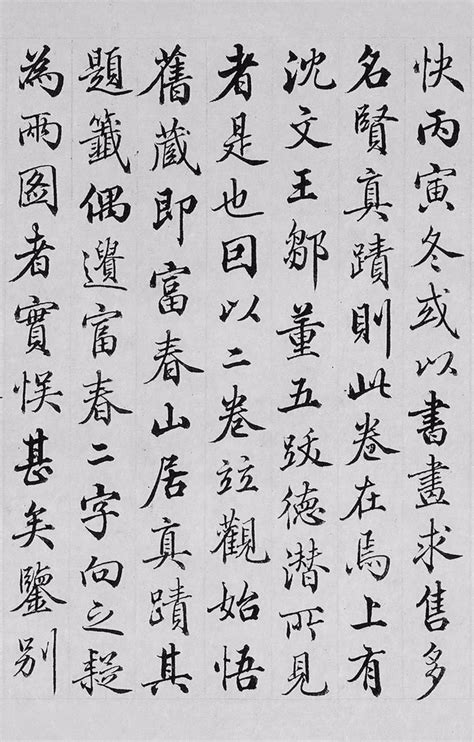 快丙寅冬或以書畫求售多
名賢真蹟則此卷在焉上有
沈文王鄒董五跋德潛所見
者是也因以二卷竝觀始悟
舊蔵即富春山居真蹟其
題籤偶遺富春二字向之疑
為兩图者實悮甚矣鑒别